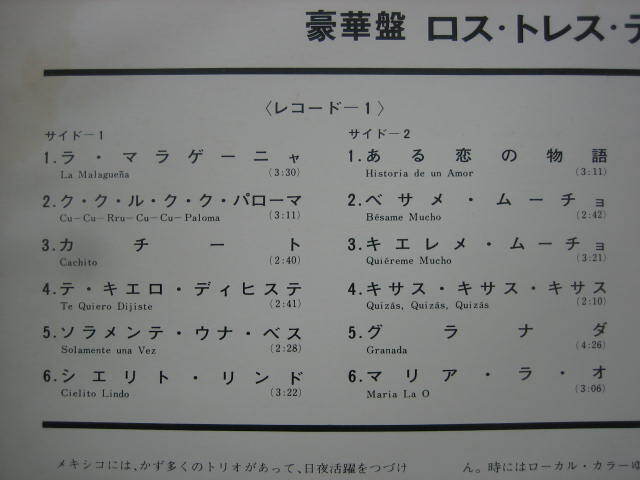 豪華盤 ロス・トレス・デ
〈レコード―1〉
サイド―1
1.ラ・マラゲーニャ
La Malagueña (3:30)
2.ク・ク・ル・ク・ク・パローマ
Cu-Cu-Rru-Cu-Cu-Paloma (3:11)
3.カチート
Cachito (2:40)
4.テ・キエロ・ディヒステ
Te Quiero Dijiste (2:41)
5.ソラメンテ・ウナ・ベス
Solamente una Vez (2:28)
6.シエリト・リンド
Cielito Lindo (3:22)
サイド―2
1.ある恋の物語
Historia de un Amor (3:11)
2.ベサメ・ムーチョ
Bésame Mucho (2:42)
3.キエレメ・ムーチョ
Quiéreme Mucho (3:21)
4.キサス・キサス・キサス
Quizás, Quizás, Quizás (2:10)
5.グラナダ
Granada (4:26)
6.マリア・ラ・オ
Maria La O (3:06)
メキシコには、かず多くのトリオがあって、日夜活躍をつづけ
ん。時にはローカル・カラーゆ